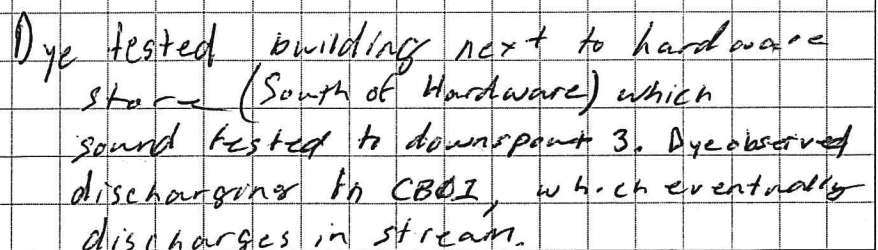 Dye tested building next to hardware
store (South of Hardware) which
sound tested to downspout 3. Dye observed
discharging in CB01, which eventually
discharges in stream.